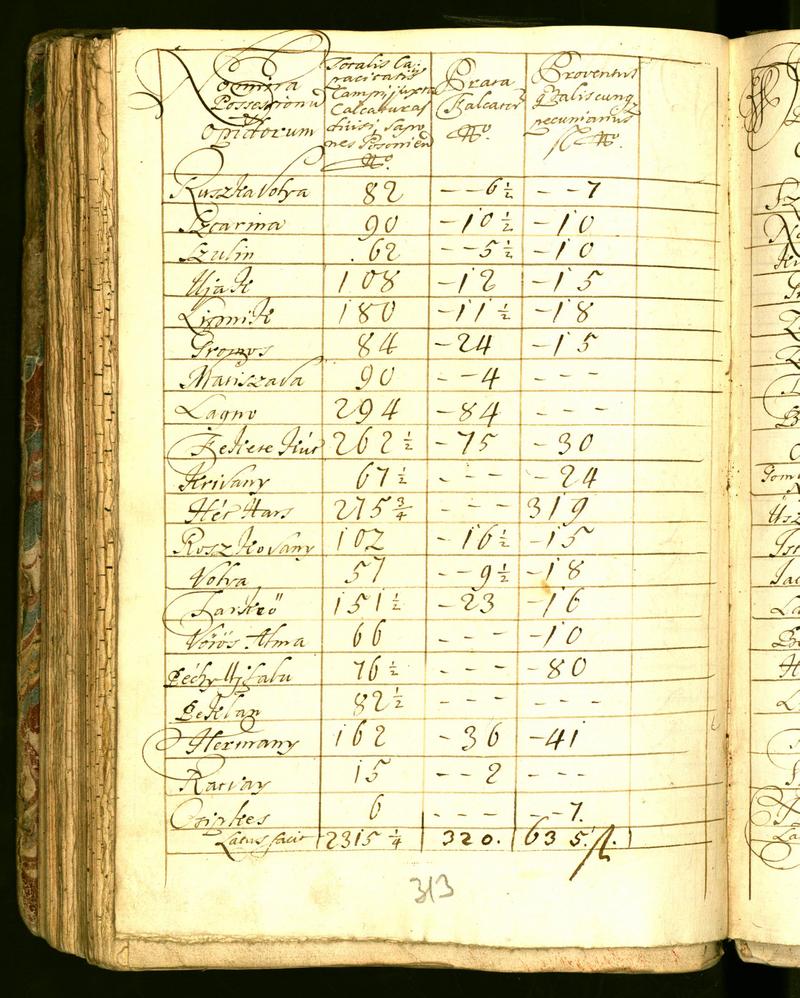 Nomina Possessionu Opidorum
Totalis Capacitatis Campi juxta Calcaturas divisi, Sapones Posonien No.
Prata Falcator No.
Proventus Qualiscunq pecuniarius No.
Ruszka Volya 82 - - 6 ½ - - 7
Szcarina 90 - 10 ½ - 10
Szulin 62 - - 5 ½ - 10
Ujak 108 - 12 - 15
Lipnik 180 - 11 ½ - 18
Gromos 84 - 24 - 15
Matiszava 90 - - 4 - - -
Lagno 294 - 84 - - -
Fekete Kút 262 ½ - 75 - 30
Krivany 67 ½ - - - - 24
Hét Hars 275 ¾ - - - 319
Roszkovany 102 - 16 ½ - 15
Volya 57 - - 9 ½ - 18
Tarkeö 151 ½ - 23 - 16
Vörös Alma 66 - - - - 10
Péchy Ujfalu 76 ½ - - - - 80
Peklan 82 ½ - - - - - -
Hermany 162 - 36 - 41
Ratvay 15 - - 2 - - -
Csipkes 6 - - - - - 7.
Latus facit 2315 ¼ 320. 635.
313